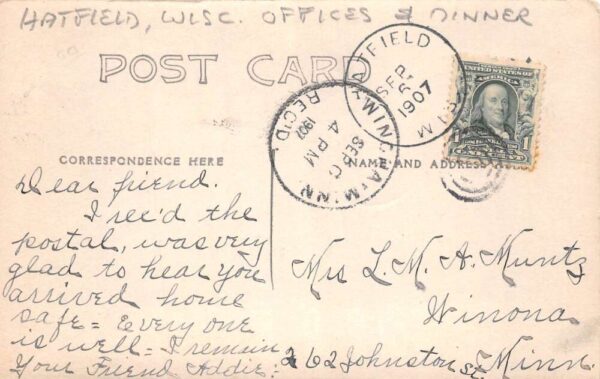 HATFIELD, WISC. OFFICES & DINNER
POST CARD
HATFIELD
SEP
1907
WIS.
WINONA, MINN.
SEP
4 PM
1907
REC'D.
UNITED STATES OF
AMERICA
1
CORRESPONDENCE HERE
NAME AND ADDRESS
Dear friend.
I rec'd the
postal, was very
glad to hear you
arrived home
safe = Every one
is well = I remain
Your Friend Addie.
Mrs L. M. A. Muntz
Winona
262 Johnston St Minn.